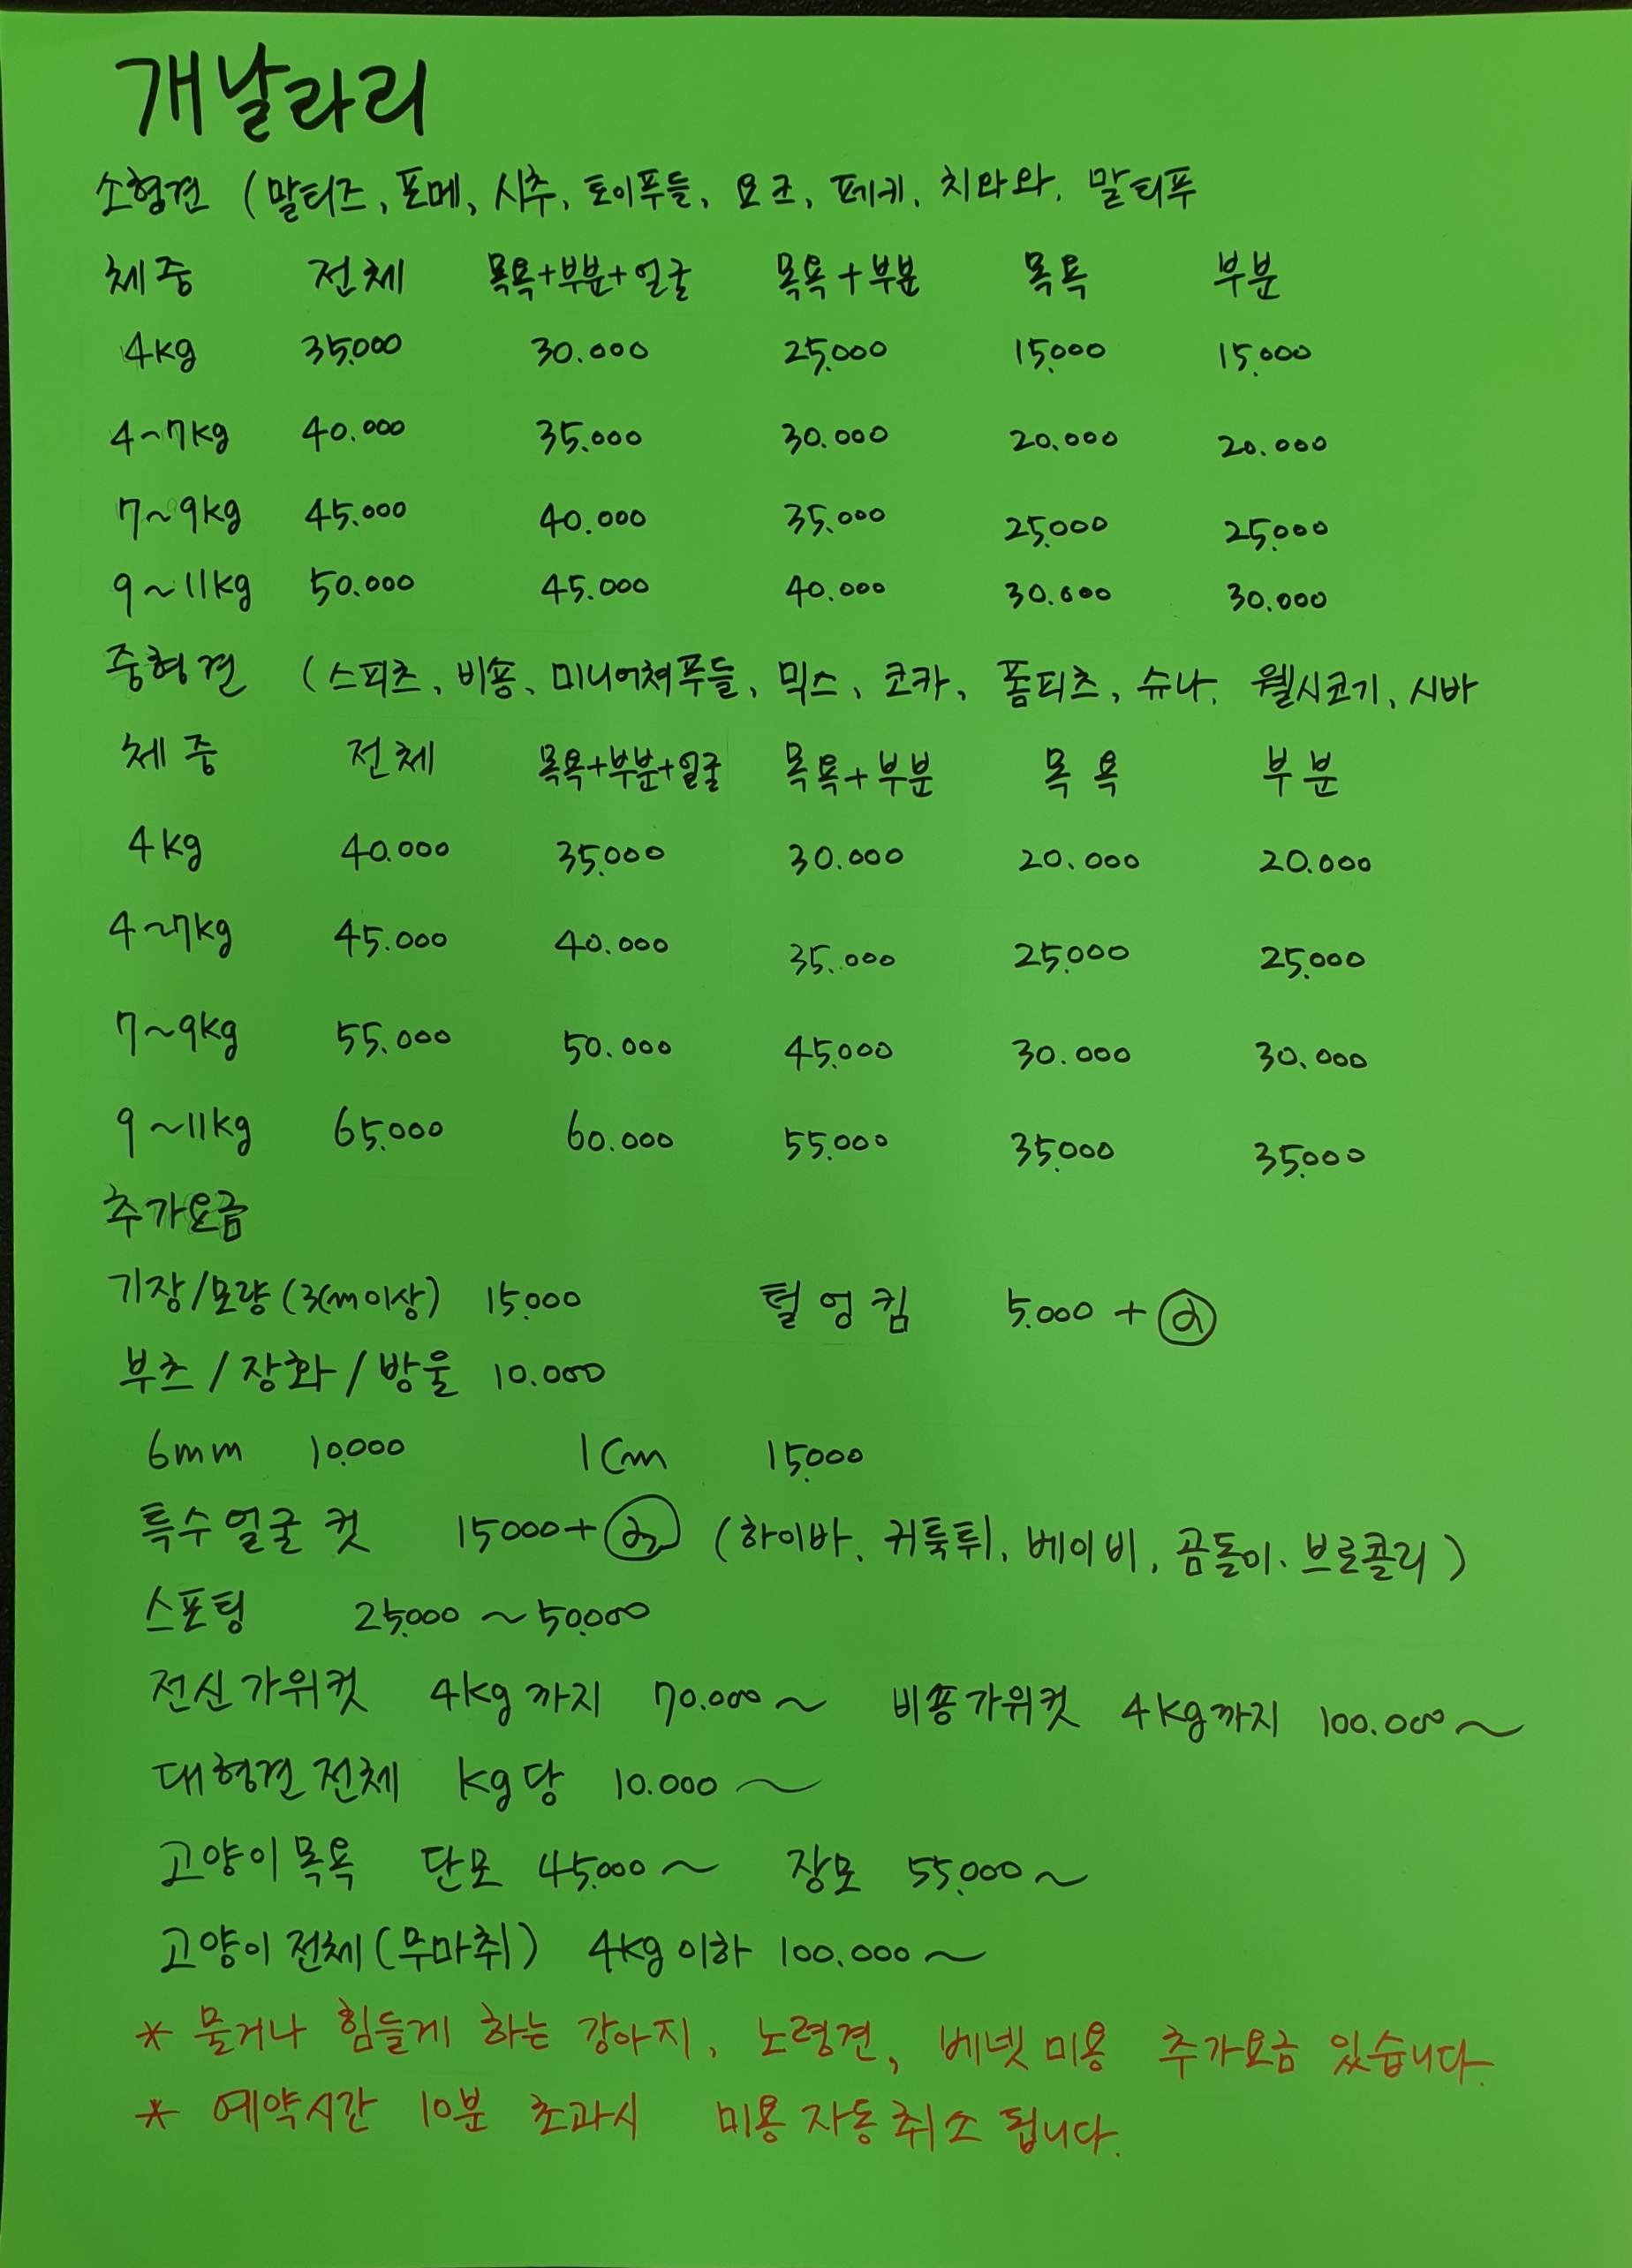 개날라리
소형견 (말티즈, 포메, 시추, 토이푸들, 요크, 페키, 치와와, 말티푸
체중 전체 목욕+부분+얼굴 목욕+부분 목욕 부분
4kg 35.000 30.000 25.000 15.000 15.000
4~7kg 40.000 35.000 30.000 20.000 20.000
7~9kg 45.000 40.000 35.000 25.000 25.000
9~11kg 50.000 45.000 40.000 30.000 30.000
중형견 (스피츠, 비숑, 미니어쳐푸들, 믹스, 코카, 폼피츠, 슈나, 웰시코기, 시바
체중 전체 목욕+부분+얼굴 목욕+부분 목욕 부분
4kg 40.000 35.000 30.000 20.000 20.000
4~7kg 45.000 40.000 35.000 25.000 25.000
7~9kg 55.000 50.000 45.000 30.000 30.000
9~11kg 65.000 60.000 55.000 35.000 35.000
추가요금
기장/모량(3cm이상) 15.000 털엉킴 5.000 + α
부츠/장화/방울 10.000
6mm 10.000 1cm 15.000
특수얼굴컷 15000+α (하이바, 귀툭튀, 베이비, 곰돌이, 브로콜리)
스포팅 25.000 ~ 50.000
전신가위컷 4kg까지 70.000~ 비숑가위컷 4kg까지 100.000~
대형견전체 kg당 10.000~
고양이목욕 단모 45.000~ 장모 55.000~
고양이전체(무마취) 4kg이하 100.000~
* 물거나 힘들게 하는 강아지, 노령견, 베넷미용 추가요금 있습니다.
* 예약시간 10분 초과시 미용자동취소 됩니다.